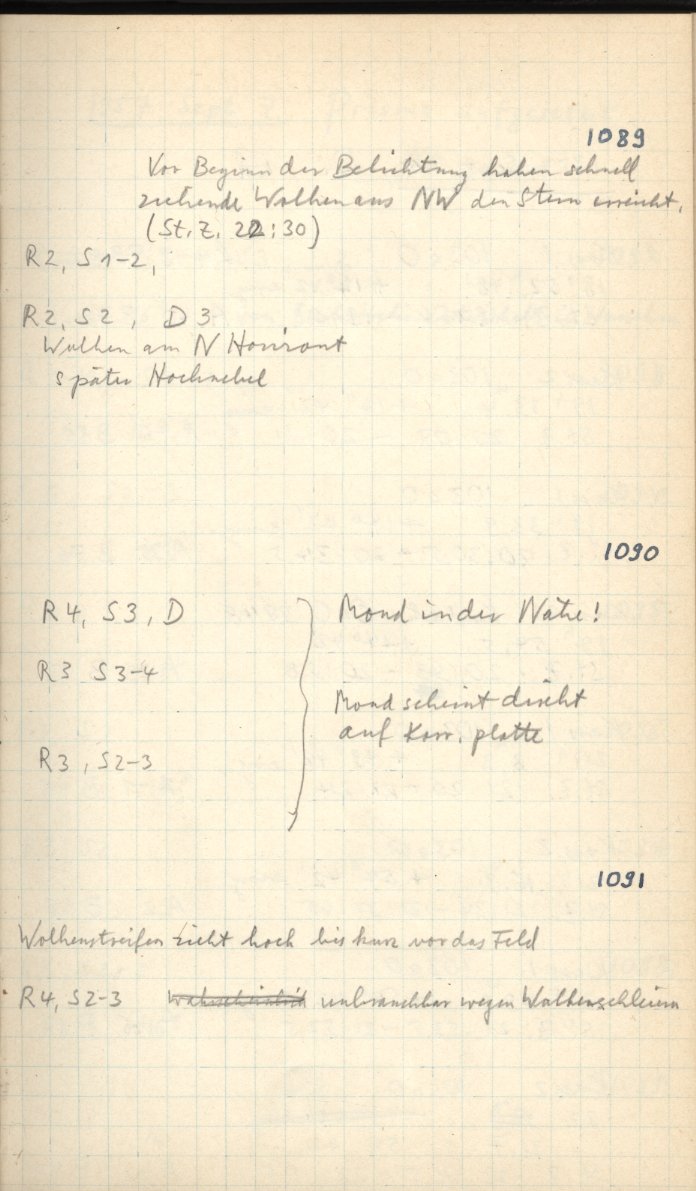 1089
Vor Beginn der Belichtung haben schnell
ziehende Wolken aus NW den Stern erreicht.
(St. Z. 22:30)
R2, S1-2,
R2, S2, D3
Wolken am N Horizont
später Hochnebel
1090
R4, S3, D
Mond in der Nähe!
R3 S3-4
Mond scheint direkt
auf Korr. platte
R3, S2-3
1091
Wolkenstreifen zieht hoch bis kurz vor das Feld
R4, S2-3 wahrscheinlich unbrauchbar wegen Wolkenschleiern